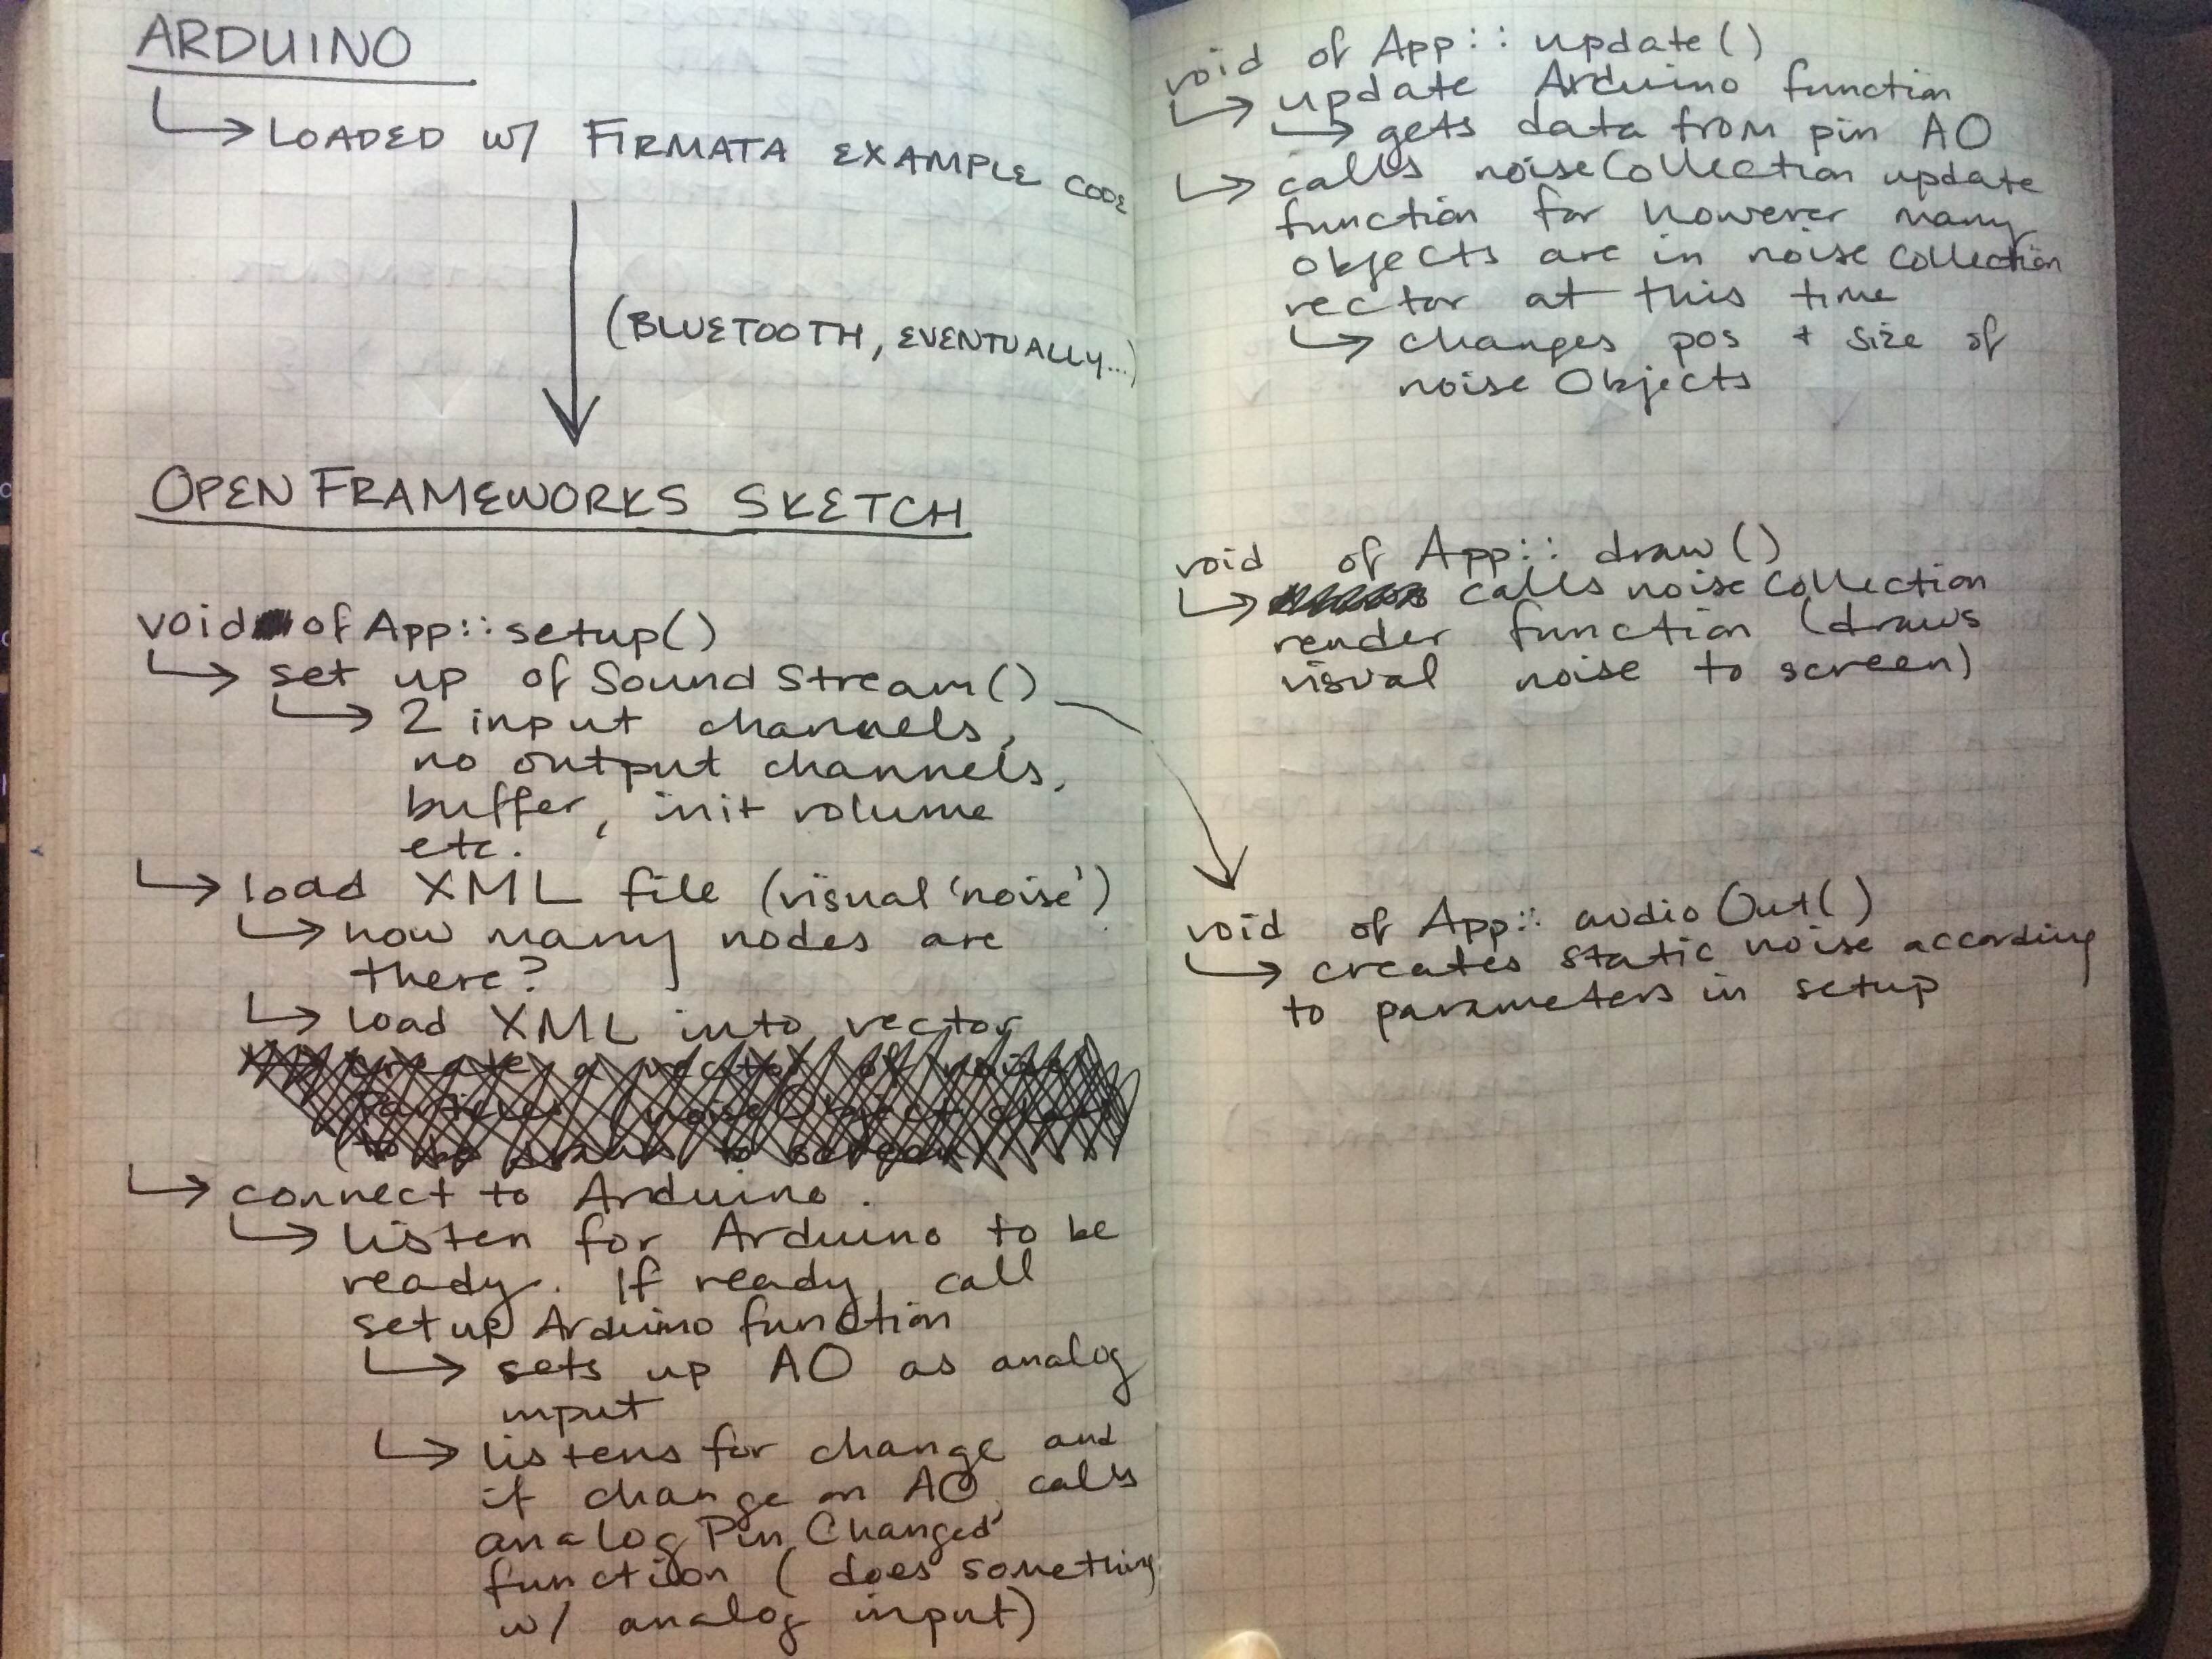 ARDUINO
↳ LOADED W/ FIRMATA EXAMPLE CODE
(BLUETOOTH, EVENTUALLY...)
OPENFRAMEWORKS SKETCH
void ofApp::setup()
↳ set up ofSoundStream()
↳ 2 input channels
no output channels,
buffer, init volume
etc.
↳ load XML file (visual 'noise')
↳ how many nodes are
there?
↳ load XML into vector
↳ connect to Arduino
↳ listen for Arduino to be
ready. If ready call
setupArduino function
↳ sets up A0 as analog
input
↳ listens for change and
if change on A0 calls
analogPinChanged'
function (does something
w/ analog input)
void ofApp::update()
↳ update Arduino function
↳ gets data from pin A0
↳ calls noiseCollection update
function for however many
objects are in noiseCollection
vector at this time
↳ changes pos + size of
noiseObjects
void ofApp::draw()
↳ calls noiseCollection
render function (draws
visual noise to screen)
void ofApp::audioOut()
↳ creates static noise according
to parameters in setup